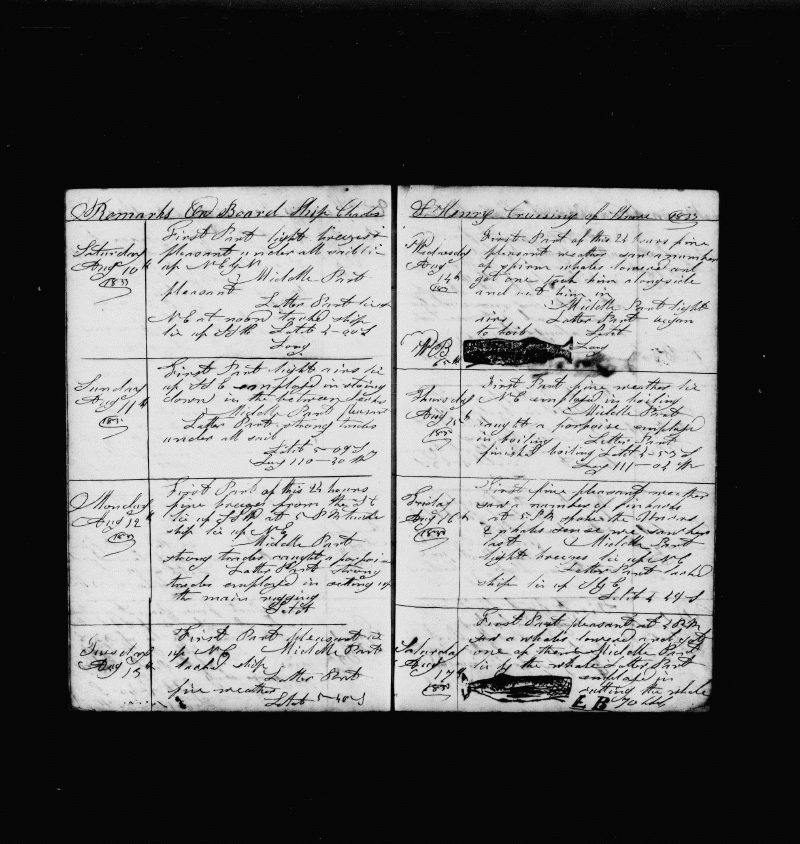 Remarks On Board Ship Charles
Saturday
Aug 10th
1833
First Part light breezes
pleasant under all sail lie
up N E by N
Middle Part
pleasant
Latter Part lie
N E at noon tacked ship
lie up Latit
Long
Sunday
Aug 11th
First Part light airs lie
up S b E employed in stowing
down in the between decks
Middle Part pleasant
Latter Part strong trades
under all sail
Latit 5-09 S
Long 110-30 W
Monday
Aug 12th
First Part of this 24 hours
fine breezes from the
lie up at 5 P M tacked
ship lie up N E
Middle Part
strong trades caught a porpoise
Latter Part strong
trades employed in setting up
the main rigging
Latit
Tuesday
Aug 13th
First Part pleasant lie
up N E Middle Part
tacked ship
Latter Part
fine weather
Latit 5-40 S
& Henry Cruising of Shore 1833
Wednesday
Aug
14th
First Part of this 24 hours fine
pleasant weather saw a number
of sperm whales lowered and
got one took him alongside
and cut him in
Middle Part light
airs Latter Part began
to boil Latit
Long
Thursday
Aug 15th
First Part fine weather lie
N E employed in boiling
Middle Part
caught a porpoise employed
in boiling Latter Part
finished boiling Latit 5-55 S
Long 111-03 W
Friday
Aug 16th
First fine pleasant weather
saw a number of finbacks
at 5 P M spoke the
2 whales since we saw her
last Middle Part
light breezes lie up N E
Latter Part tacked
ship lie up S b E
Latit 4 29 S
Saturday
Aug
17th
First Part pleasant at 2 P M
saw a whales lowered and got
one of them Middle Part
lie by the whale Latter Part
employed in
cutting the whale
E B 70 bbls